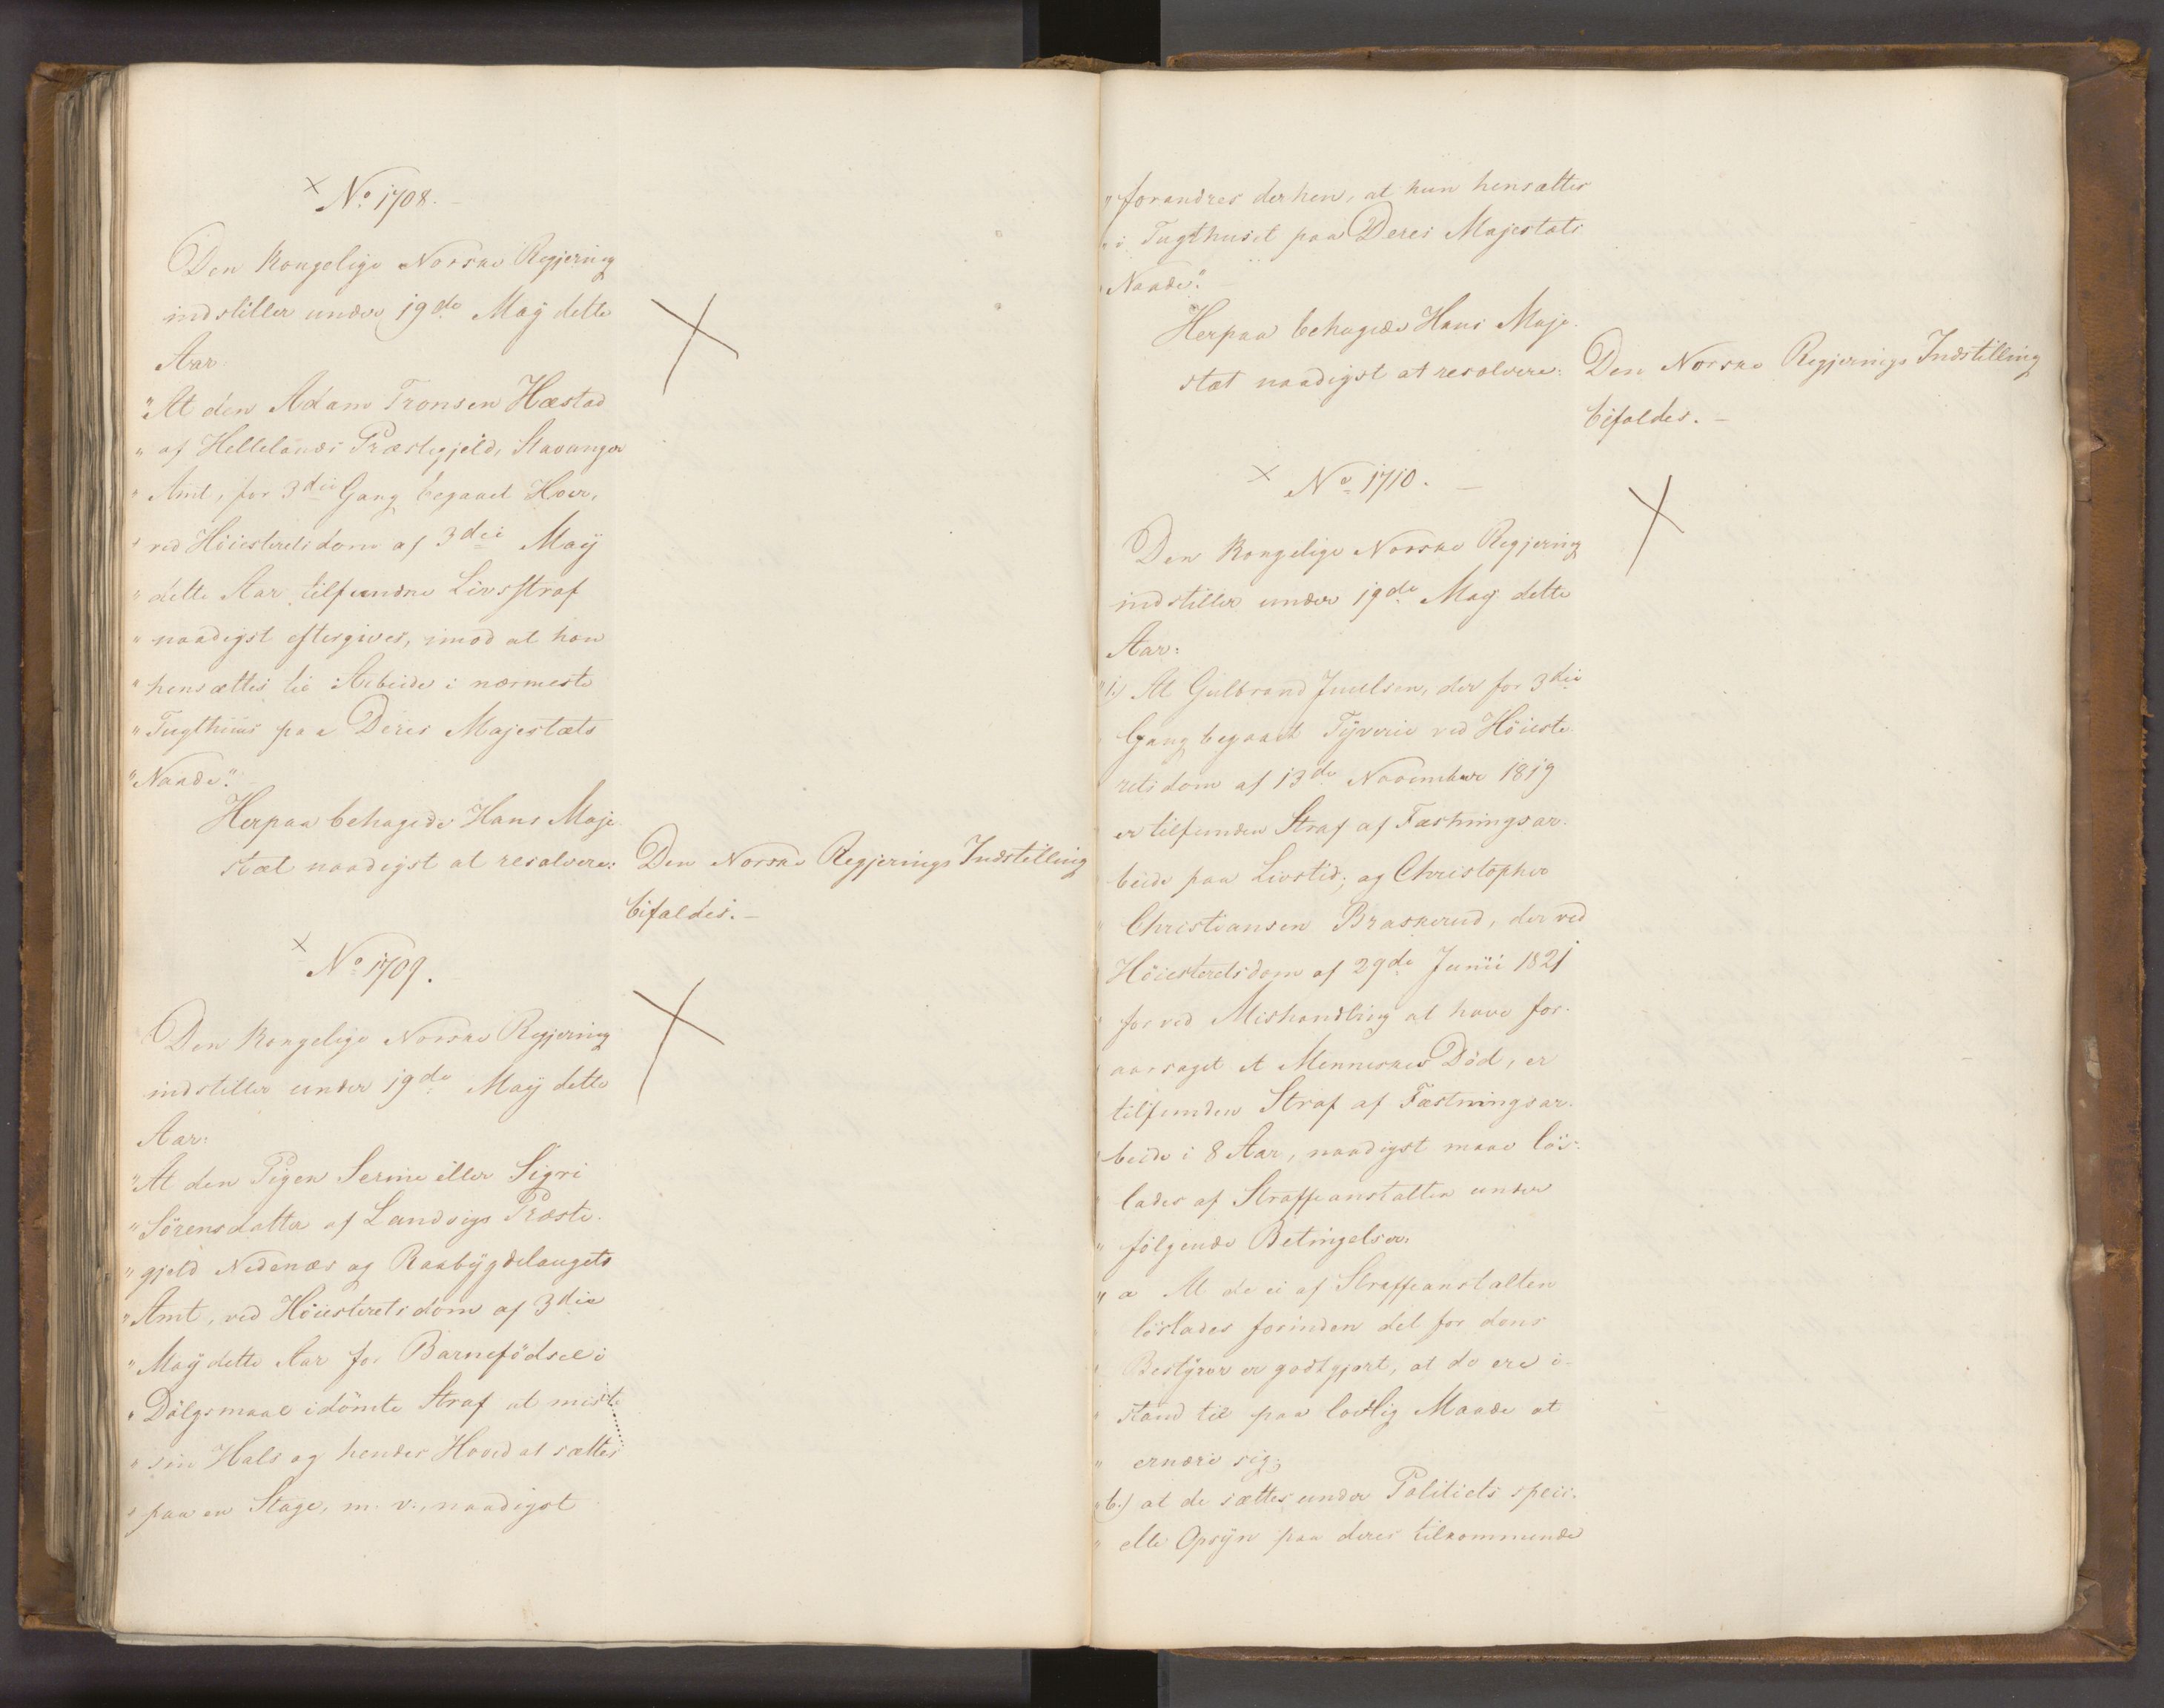 No 1708.
Den Kongelige Norske Regjering
indstiller under 19de May dette
Aar
"At den Adam Tronsen Hæstad
" af Hellelands Præstegjeld, Stavanger
" Amt, for 3die Gang begaaet Hoer,
" ved Höiesteretsdom af 3die May
" dette Aar tilfundne Livsstraf
" naadigst eftergives, imod at han
" hensættes til Arbeide i nærmeste
" Tugthuus paa Deres Majestæts
" Naade".
Herpaa behagede Hans Maje-
stæt naadigst at resolvere:
Den Norske Regjerings Indstilling
bifaldes.
No 1709.
Den Kongelige Norske Regjering
indstiller under 19de May dette
Aar:
"At den Pigen Serine eller Sigri
" Sörensdatter af Landvigs Præste-
" gjeld Nedenæs og Raabÿgdelaugets
" Amt, ved Höiesteretsdom af 3die
" Maÿ dette Aar for Barnefödsel i
" Dölgsmaal idömte Straf at miste
" sin Hals og hendes Hoved at sættes
" paa en Stage, m. v., naadigst
" forandres derhen, at hun hensættes
" i Tugthuset paa Deres Majestæts
Naade".
Herpaa behagede Hans Maje-
stæt naadigst at resolvere:
Den Norske Regjerings Indstilling
bifaldes.
No 1710.
Den Kongelige Norske Regjering
indstiller under 19de May dette
Aar:
"1.) At Gulbrand Juelsen, der for 3die
Gang begaaet Tÿverie ved Höieste-
retsdom af 13de November 1819
er tilfunden Straf af Fæstningsar-
beide paa Livstid; og Christopher
Christiansen Braskerud, der ved
Höiesteretsdom af 29de Junii 1821
for ved Mishandling at have for-
aarsaget et Menneskes Död, er
tilfunden Straf af Fæstningsar-
beide i 8 Aar, naadigst maae lös-
lades af Straffeanstalten under
" fölgende Betingelser:
" a At de ei af Straffeanstalten
löslades forinden det for dens
Bestÿrer er godtgjort, at de ere i-
" stand til paa lovlig Maade at
" ernære sig;
" b.) at de sættes under Politiets speci-
" elle Opsÿn paa deres tilkommende